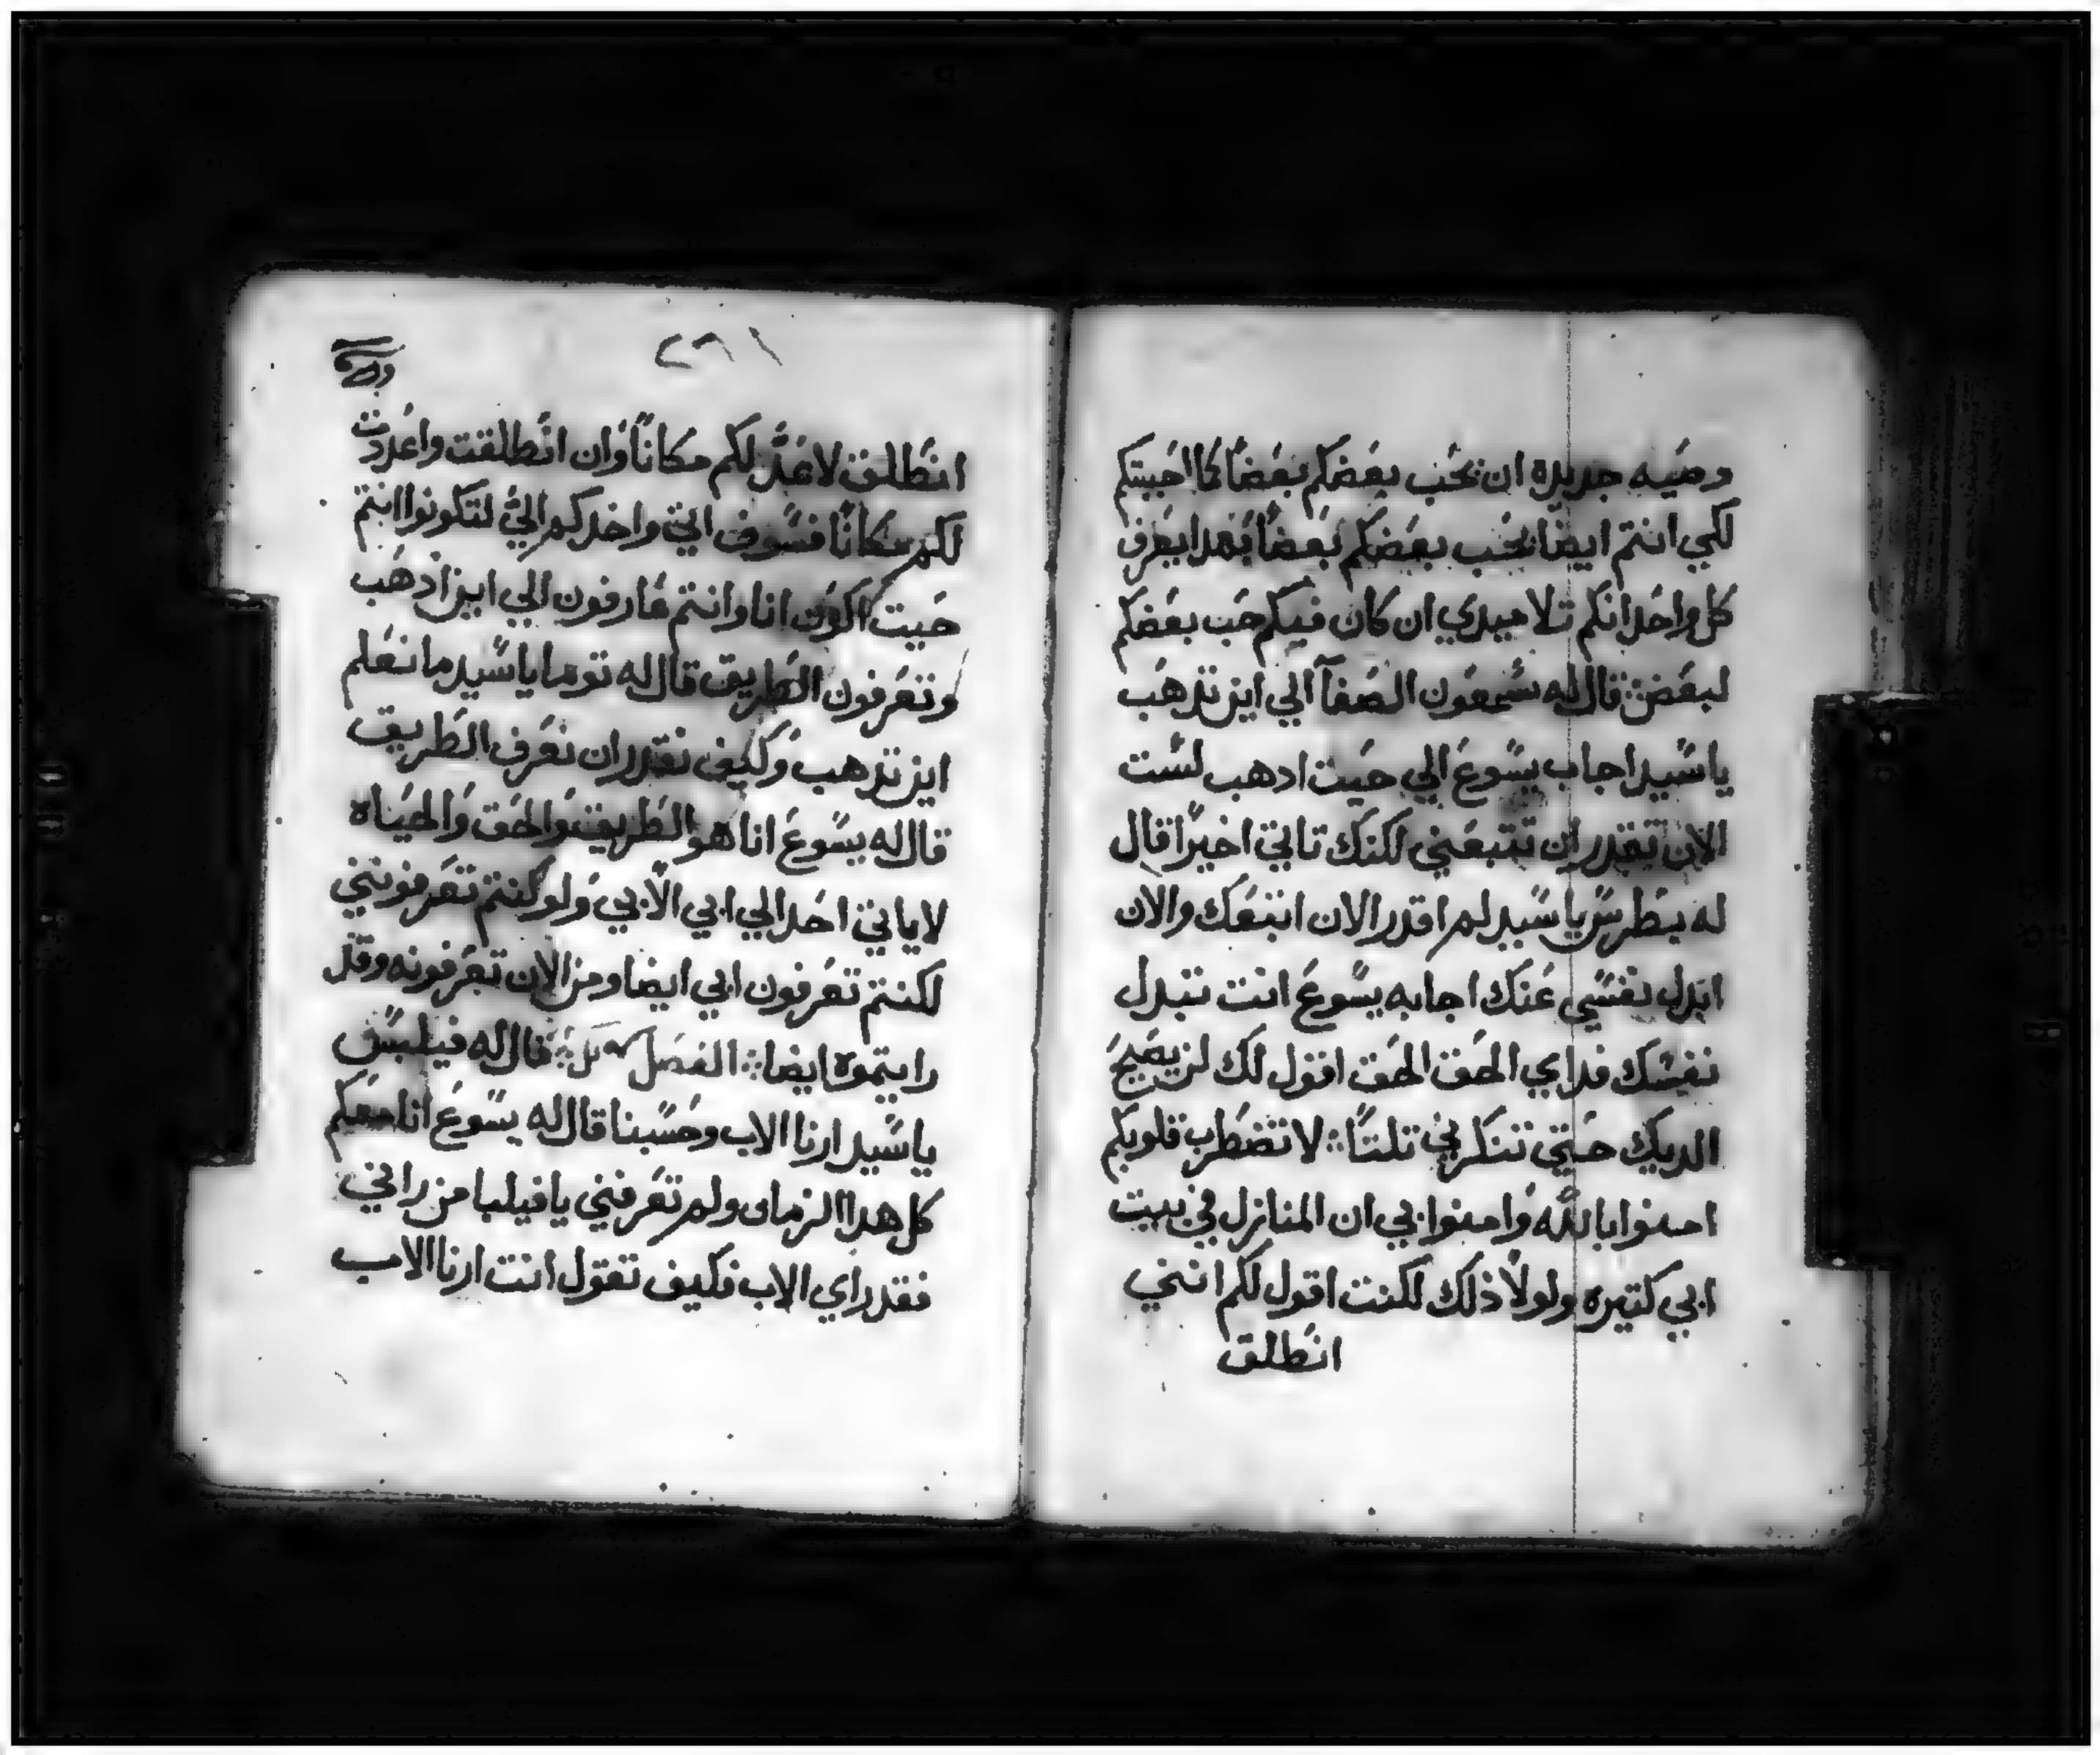 وصيه جديده ان يحب بعضكم بعضا كما احببتكم
لكي انتم ايضا يحب بعضكم بعضا بهدا يعرف
كل واحد انكم تلاميدي ان كان فيكم حب بعضكم
لبعض قال له سمعون الصفا الي اين تدهب
ياسيد اجاب يسوع الي حيت ادهب لست
الان تقدر ان تتبعني لكنك تاتي اخيرا قال
له بطرس ياسيد لم اقدر الان اتبعك والان
ابدل نفسي عنك اجابه يسوع انت تبدل
نفسك فداي الحق الحق اقول لك لن يصيح
الديك حتي تنكرني تلتا لا تضطرب قلوبكم
امنوا بالله وامنوا بي ان المنازل في بيت
ابي كتيره ولولا ذلك لكنت اقول لكم انني
انطلق
٢٦١
انطلق لاعد لكم مكانا وان انطلقت واعددت
لكم مكانا فسوف اتي واخدكم الي لتكونوا انتم
حيت اكون انا وانتم عارفون الي اين ادهب
وتعرفون الطريق قال له توما ياسيد ما نعلم
اين تدهب وكيف نقدر ان نعرف الطريق
قال له يسوع انا هو الطريق والحق والحياه
لا ياتي احد الي ابي الا بي ولو كنتم تعرفونني
لكنتم تعرفون ابي ايضا ومن الان تعرفونه وقد
رايتموه ايضا الفصل قال له فيلبس
ياسيد ارنا الاب وحسبنا قال له يسوع انا معكم
كل هدا الزمان ولم تعرفني يا فيلبا من راني
فقد راي الاب فكيف تقول انت ارنا الاب